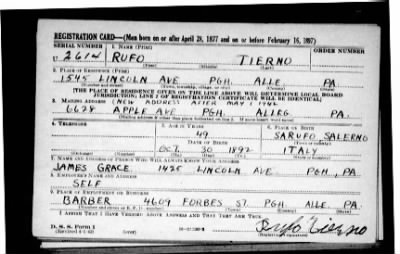 REGISTRATION CARD—(Men born on or after April 28, 1877 and on or before February 16, 1897)
SERIAL NUMBER 1. NAME (Print) ORDER NUMBER
U 2614 RUFO TIERNO
(First) (Middle) (Last)
2. PLACE OF RESIDENCE (Print)
1545 LINCOLN AVE PGH. ALLE. PA.
(Number and street) (Town, township, village, or city) (County) (State)
[THE PLACE OF RESIDENCE GIVEN ON THE LINE ABOVE WILL DETERMINE LOCAL BOARD
JURISDICTION; LINE 2 OF REGISTRATION CERTIFICATE WILL BE IDENTICAL]
3. MAILING ADDRESS (NEW ADDRESS AFTER MAY 1 1942
6628 APPLE AVE PGH. ALLEG PA.
[Mailing address if other than place indicated on line 2. If same insert word same]
4. TELEPHONE 5. AGE IN YEARS 6. PLACE OF BIRTH
49 SARUFO SALERNO
DATE OF BIRTH (Town or county)
OCT. 30 1892 ITALY
(Exchange) (Number) (Mo.) (Day) (Yr.) (State or country)
7. NAME AND ADDRESS OF PERSON WHO WILL ALWAYS KNOW YOUR ADDRESS
JAMES GRACE 1425 LINCOLN AVE PGH., PA.
8. EMPLOYER'S NAME AND ADDRESS
SELF
9. PLACE OF EMPLOYMENT OR BUSINESS
BARBER 4609 FORBES ST. PGH. ALLE. PA.
(Number and street or R. F. D. number) (Town) (County) (State)
I AFFIRM THAT I HAVE VERIFIED ABOVE ANSWERS AND THAT THEY ARE TRUE.
D. S. S. Form 1
(Revised 4-1-42) (Over) Rufo Tierno
(Registrant's signature)